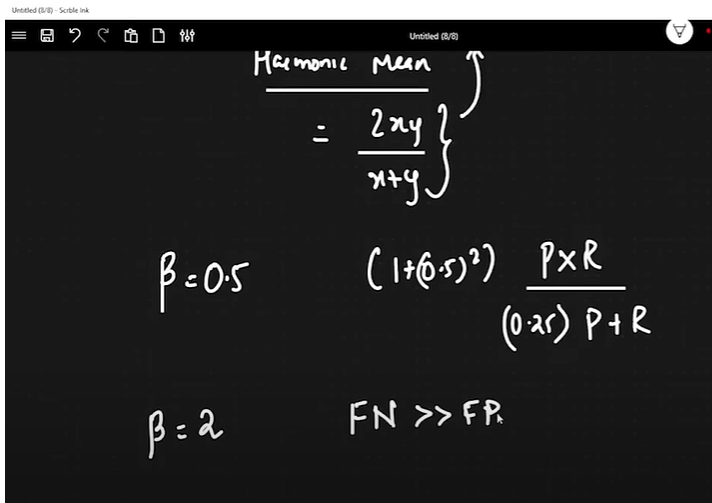 Untitled (8/8) - Scrble Ink
Untitled (8/8)
Harmonic Mean
= 2xy
x+y
β=0.5 (1+(0.5)²) P×R
(0.25) P+R
β=2 FN >> FP